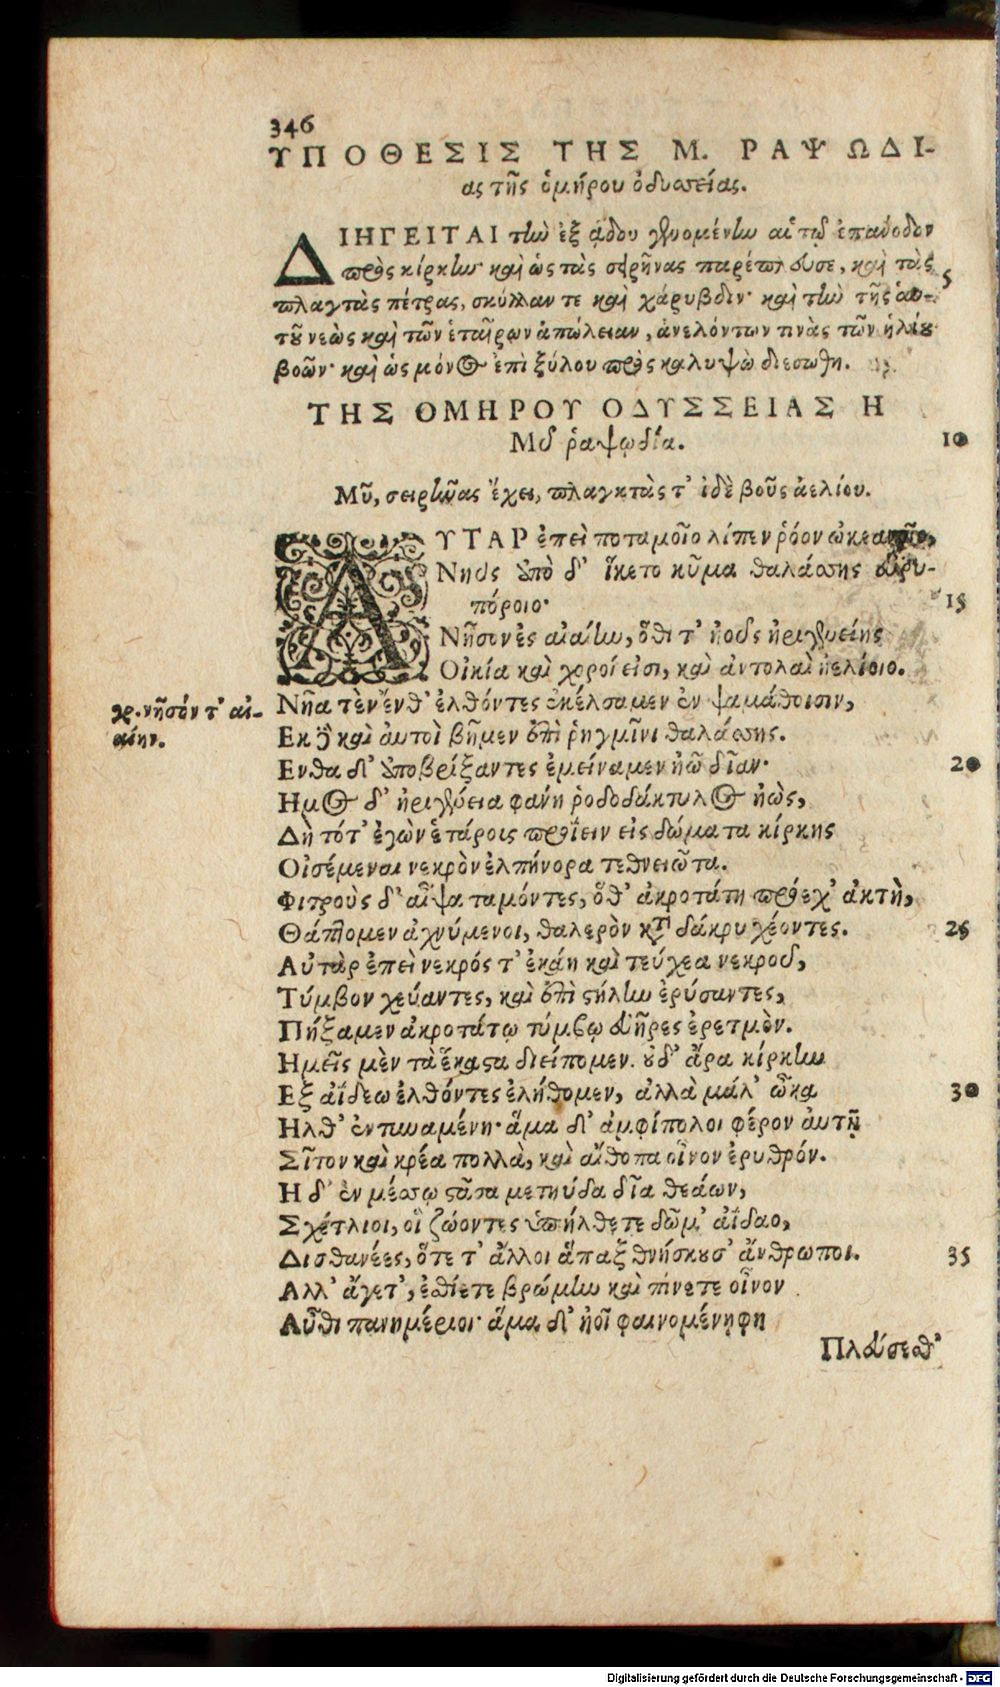 346
ΥΠΟΘΕΣΙΣ ΤΗΣ Μ. ΡΑΨΩΔΙ-
ας τῆς ὁμήρου ὀδυσσείας.
ΔΙΗΓΕΙΤΑΙ τὴν ἐξ ᾅδου γενομένην αὐτῷ ἐπάνοδον
πρὸς κίρκην· καὶ ὡς τὰς σειρῆνας παρέπλευσε, καὶ τὰς 5
πλαγτὰς πέτρας, σκύλλαν τε καὶ χάρυβδιν· καὶ τὴν τῆς αὐ-
τοῦ νεὼς καὶ τῶν ἑταίρων ἀπώλειαν, ἀνελόντων τινὰς τῶν ἡλίου
βοῶν· καὶ ὡς μόνος ἐπὶ ξύλου πρὸς καλυψὼ διεσώθη.
ΤΗΣ ΟΜΗΡΟΥ ΟΔΥΣΣΕΙΑΣ Η
Μῦ ῥαψῳδία. 10
Μῦ, σειρῆνας ἔχει, πλαγκτὰς τ' ἰδὲ βοῦς ἀελίου.
ΑΥΤΑΡ ἐπεὶ ποταμοῖο λίπεν ῥόον ὠκεανοῖο,
Νηῦς ἀπὸ δ' ἵκετο κῦμα θαλάσσης εὐρυ-
πόροιο· 15
Νῆσον ἐς αἰαίην, ὅθι τ' ἠοῦς ἠριγενείης
Οἰκία καὶ χοροί εἰσι, καὶ ἀντολαὶ ἠελίοιο.
γρ. νῆσόν τ' αἰ-
αίην.
Νῆα τὲν ἔνθ' ἐλθόντες ἐκέλσαμεν ἐν ψαμάθοισιν,
Εκ δὲ καὶ ἀυτοὶ βῆμεν ἐπὶ ῥηγμῖνι θαλάσσης.
Ενθα δ' ἀποβρίξαντες ἐμείναμεν ἠῶ δῖαν· 20
Ημος δ' ἠριγένεια φάνη ῥοδοδάκτυλος ἠὼς,
Δὴ τότ' ἐγὼν ἑτάροις προΐειν εἰς δώματα κίρκης
Οἰσέμεναι νεκρὸν ἐλπήνορα τεθνειῶτα.
Φιτροὺς δ' αἶψα ταμόντες, ὅθ' ἀκροτάτη πρόεχ' ἀκτὴ,
Θάπτομεν ἀχνύμενοι, θαλερὸν κατὰ δάκρυ χέοντες. 25
Αὐτὰρ ἐπεὶ νεκρός τ' ἐκάη καὶ τεύχεα νεκροῦ,
Τύμβον χεύαντες, καὶ ἐπὶ στήλην ἐρύσαντες,
Πήξαμεν ἀκροτάτῳ τύμβῳ εὐῆρες ἐρετμὸν.
Ημεῖς μὲν τὰ ἕκαστα διείπομεν. οὐδ' ἄρα κίρκην
Εξ ἀΐδεω ἐλθόντες ἐλήθομεν, ἀλλὰ μάλ' ὦκα 30
Ηλθ' ἐντυναμένη· ἅμα δ' ἀμφίπολοι φέρον ἀυτῇ
Σῖτον καὶ κρέα πολλὰ, καὶ αἴθοπα οἶνον ἐρυθρόν.
Η δ' ἐν μέσσῳ στᾶσα μετηύδα δῖα θεάων,
Σχέτλιοι, οἳ ζώοντες ὑπήλθετε δῶμ' ἀΐδαο,
Δισθανέες, ὅτε τ' ἄλλοι ἅπαξ θνήσκουσ' ἄνθρωποι. 35
Αλλ' ἄγετ', ἐσθίετε βρώμην καὶ πίνετε οἶνον
Αὖθι πανημέριοι· ἅμα δ' ἠοῖ φαινομένηφι
Πλεύσεσθ'
Digitalisierung gefördert durch die Deutsche Forschungsgemeinschaft - DFG